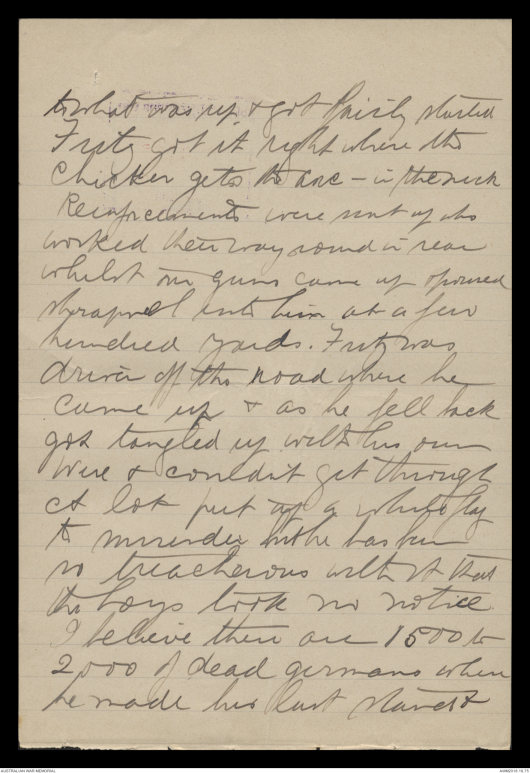 to what was up & got fairly started
Fritz got it right where the
chicken gets the axe – in the neck
Reinforcements were sent up who
worked their way round in rear
whilst our guns came up & poured
shrapnel into him at a few
hundred yards. Fritz was
driven off the road where he
came up & as he fell back
got tangled up with his own
wire & couldn't get through
A lot put up a white flag
to surrender but he has been
so treacherous with it that
the boys took no notice.
I believe there are 1500 to
2,000 of dead germans where
he made his last stand &
AUSTRALIAN WAR MEMORIAL